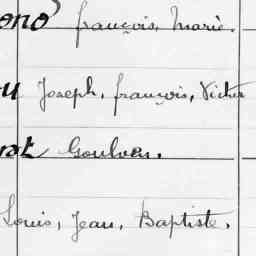 ono françois, Marie.
u Joseph, françois, Victor
at Goulven.
Louis, Jean, Baptiste.